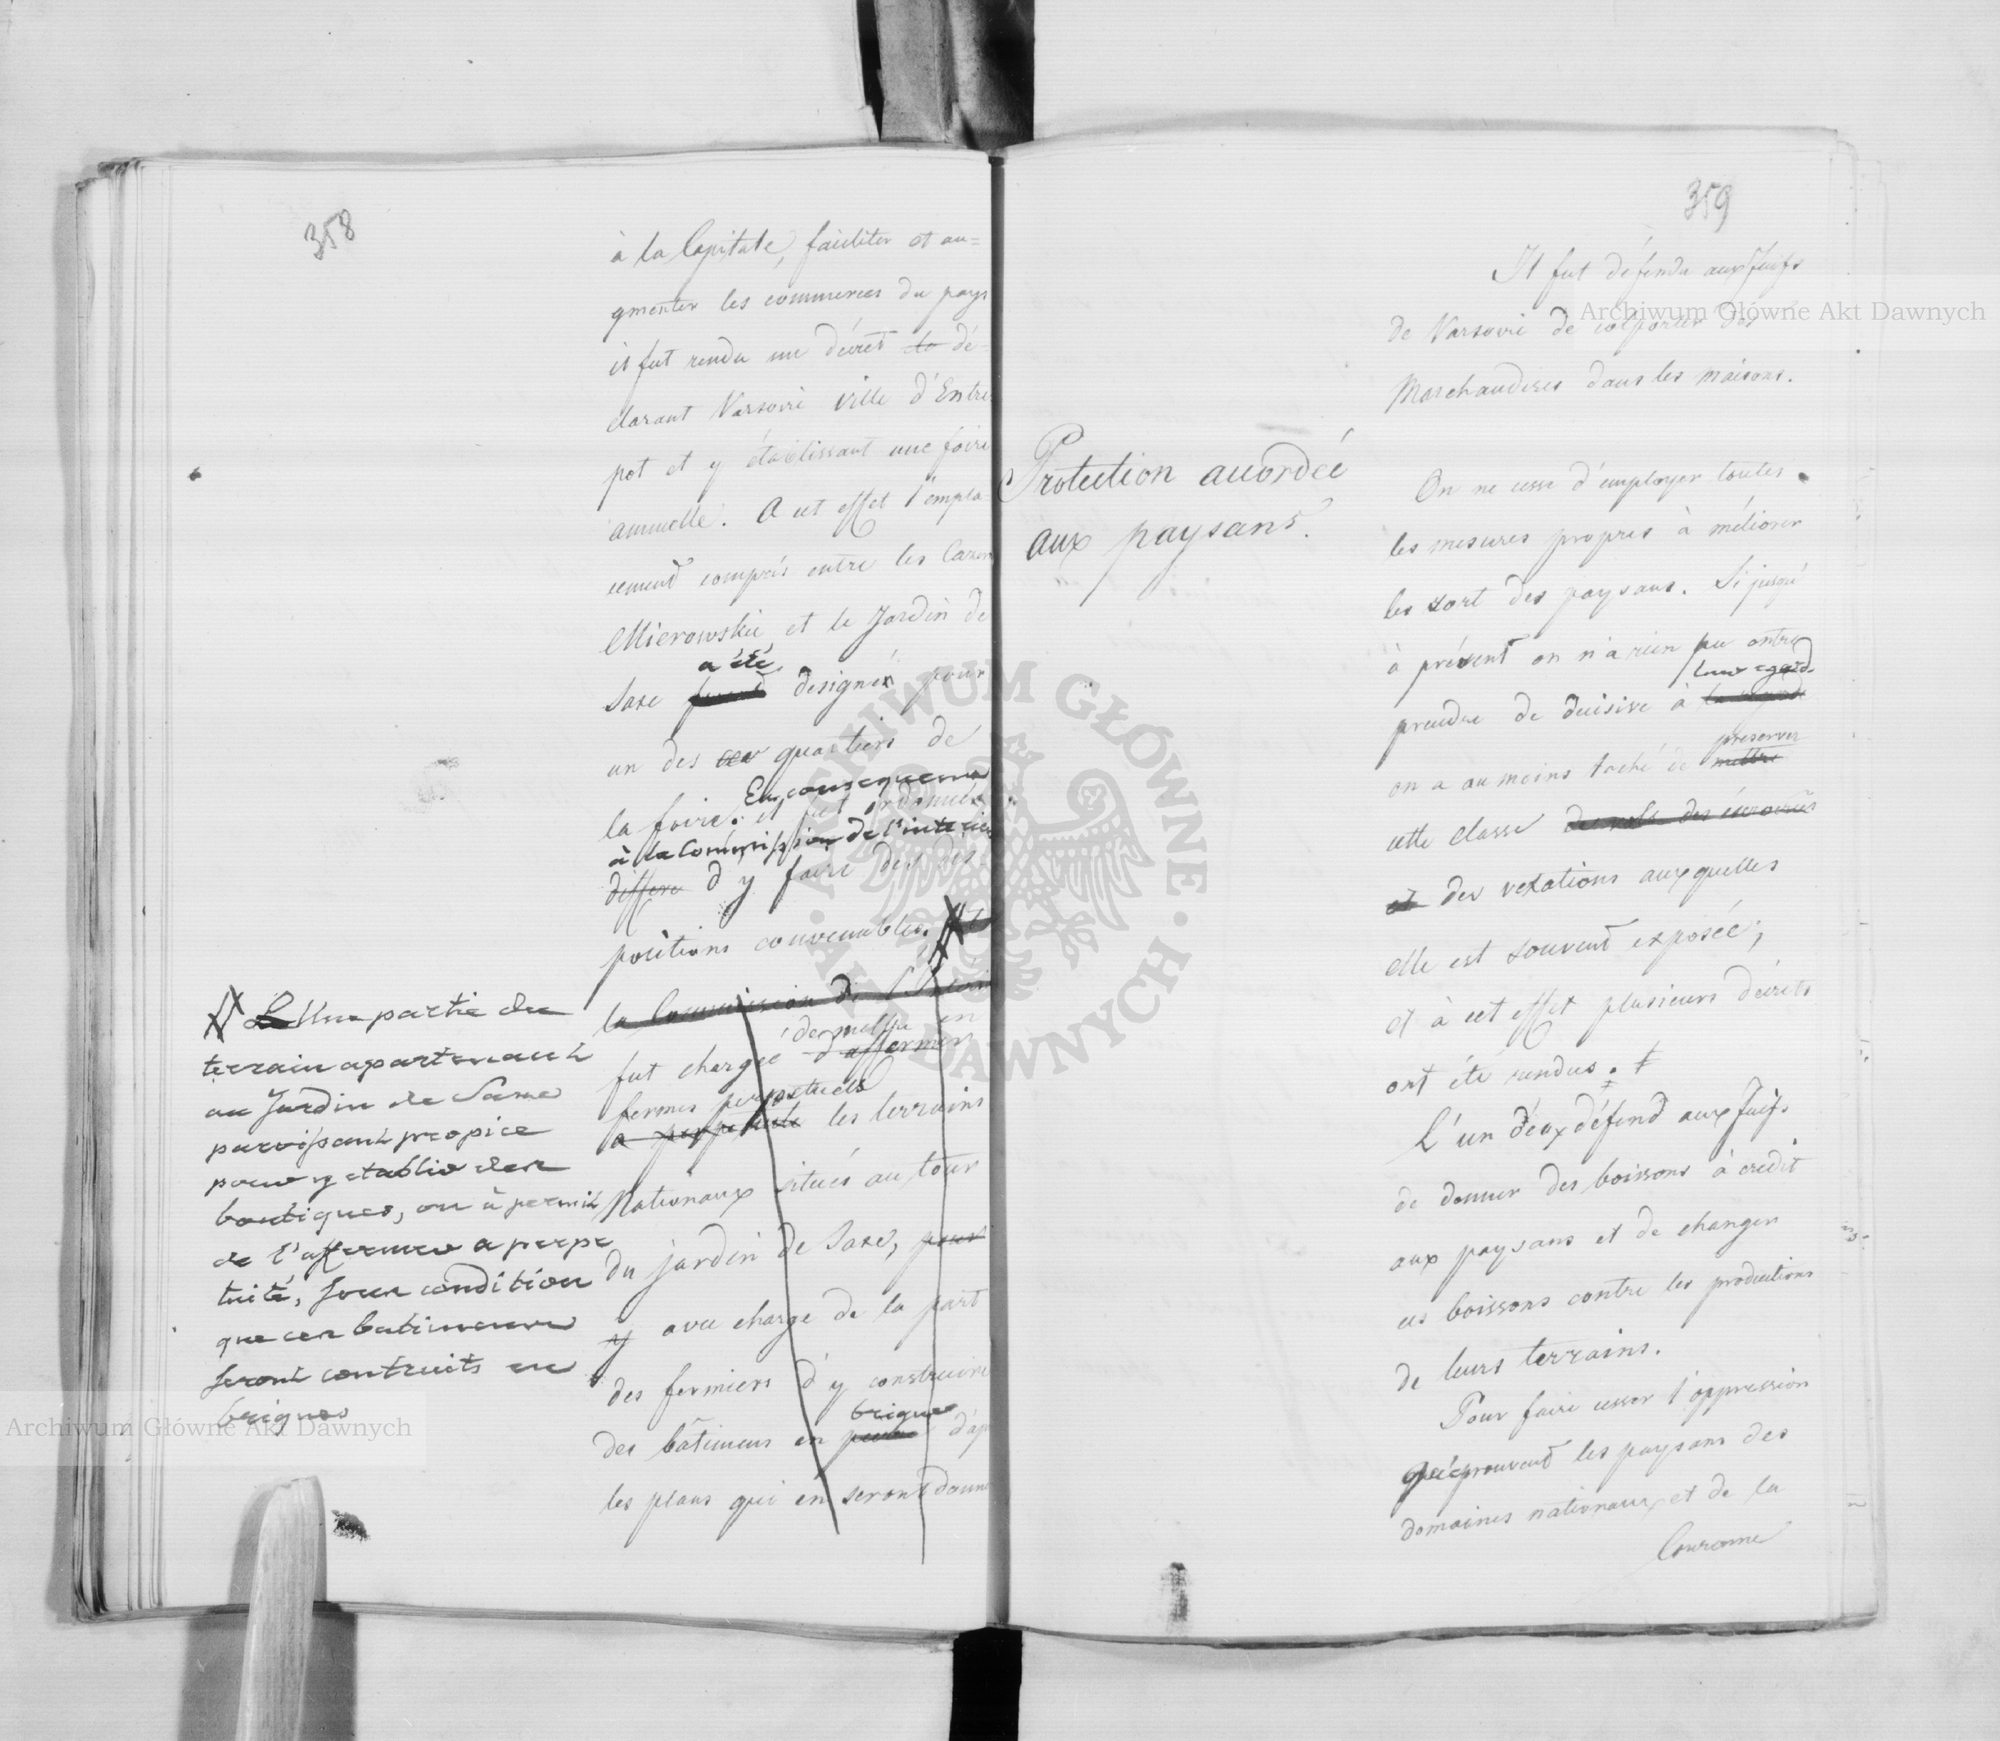 358
à la Capitale, faciliter et au=
gmenter les commerces du pays
il fut rendu un décret de dé=
clarant Varsovie ville d'Entre
pot et y établissant une foire
annuelle. A cet effet l'empla=
cement compris entre les Casern
Mierowskie et le Jardin de
a été
Saxe furent designés pour
un des ces quartiers de
En consequence
la foire. et fut ordonné
à la Commission de l'interieur
d'y faire des dis=
positions convenables.
la Commission de l'Intéri
de mettre en
fut chargée d'affermer
fermes perpetuels
a perpetuité les terrains
Nationaux situés au tour
du jardin de Saxe, pour
y avec charge de la part
des fermiers d'y construire
brique
des bâtimens en d'ap
les plans qui en seront donn
Une partie du
terrain apartenant
au Jardin de Saxe
paroissant propice
pour y etablir des
boutiques, on a permit
de l'affermer a perpe
tuité, sous condition
que ces batimens
seront contruits en
briques
359
Il fut défendu aux Juifs
de Varsovie de colporter des
Marchandises dans les maisons.
Protection accordée
aux paysans.
On ne cesse d'employer toutes
les mesures propres à méliorer
les sort des paysans. Si jusqu'
à présent on n'a rien pu entre
leur egard
prendre de decisive à
preserver
on a au moins taché de mettre
cette classe
et des vexations auxquelles
elle est souvent exposée,
et à cet effet plusieurs décrets
ont été rendus.
L'un d'eux défend aux Juifs
de donner des boissons à crédit
aux paysans et de changer
ces boissons contre les productions
de leurs terrains.
Pour faire cesser l'oppression
qu'éprouvent les paysans des
domaines nationaux et de la
Couronne
Archiwum Główne Akt Dawnych
Archiwum Główne Akt Dawnych
ARCHIWUM GŁÓWNE · AKT DAWNYCH ·